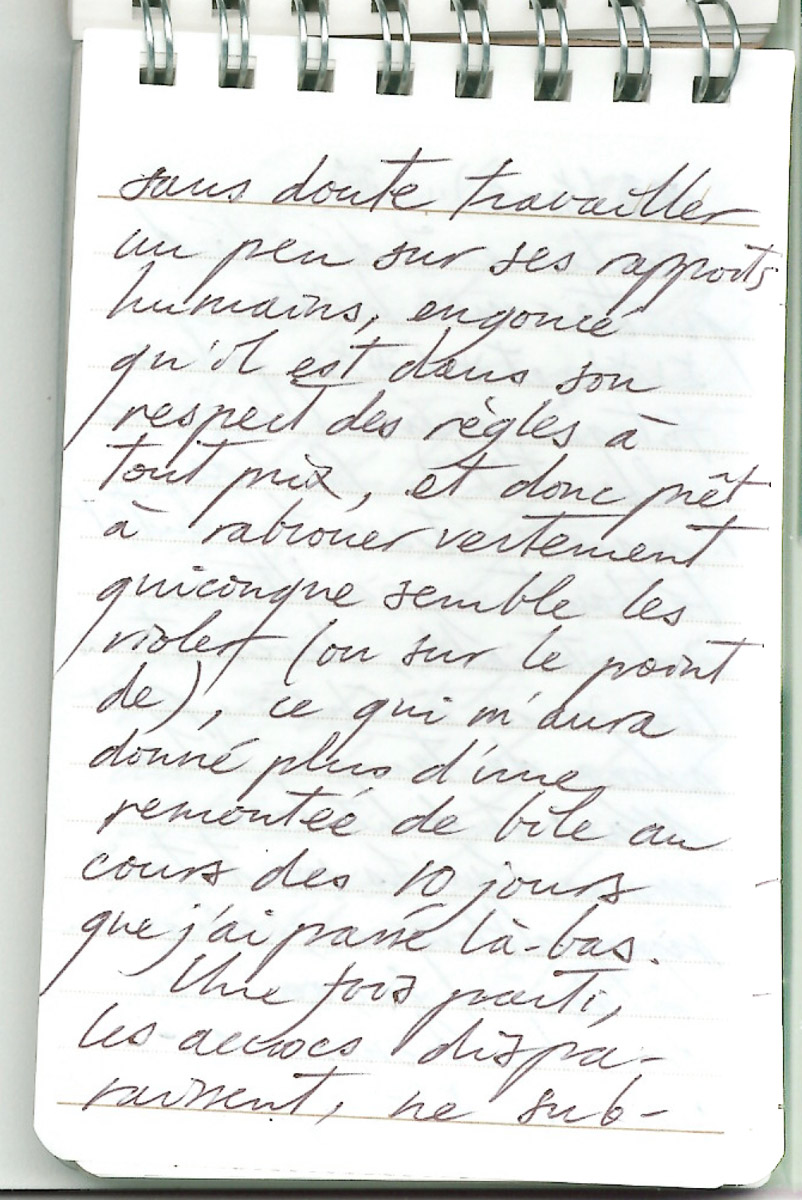 sans doute travailler
un peu sur ses rapports
humains, engoncé
qu'il est dans son
respect des règles à
tout prix, et donc prêt
à rabrouer vertement
quiconque semble les
violer (ou sur le point
de), ce qui m'aura
donné plus d'une
remontée de bile au
cours des 10 jours
que j'ai passé là-bas.
Une fois parti,
les accrocs dispa-
raissent, ne sub-